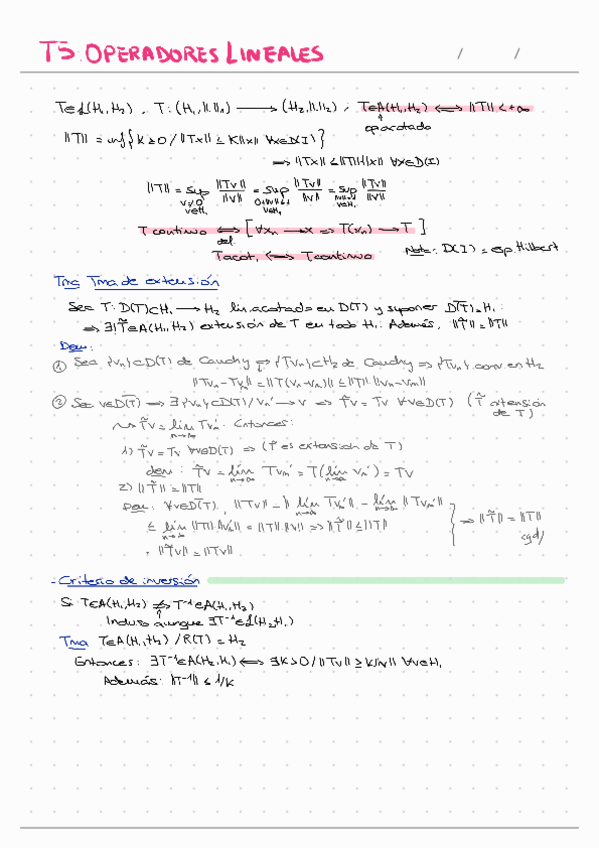 T5. OPERADORES LINEALES / /
T∈L(H₁,H₂) , T: (H₁,||.||₁) ⟶ (H₂,||.||₂) , T∈A(H₁,H₂) ⟺ ||T|| < +∞
↑ op. acotado
||T|| = inf{K≥0 / ||Tx|| ≤ K||x|| ∀x∈D(T)}
⟹ ||Tx|| ≤ ||T|| ||x|| ∀x∈D(T)
||T|| = sup ||Tv||/||v|| = sup ||Tv||/||v|| = sup ||Tv||/||v||
v≠0 v∈H₁
T continuo ⟺ [∀xₙ ⟶ x ⟹ T(xₙ) ⟶ T ]
def.
Tacot. ⟺ T continuo Nota: D(T) = esp. Hilbert
Tma Tma de extensión
Sea T: D(T)⊂H₁ ⟶ H₂ lin. acotado en D(T) y suponer D(T)=H₁:
⟹ ∃! T̃∈A(H₁,H₂) extensión de T en todo H₁. Además, ||T̃|| = ||T||
Dem:
① Sea {vₙ}⊂D(T) de Cauchy ⟹ {Tvₙ}⊂H₂ de Cauchy ⟹ {Tvₙ} conv en H₂
||Tvₙ - Tvₘ|| = ||T(vₙ-vₘ)|| ≤ ||T|| ||vₙ-vₘ||
② Sea v∈D(T) ⟹ ∃{vₙ'}⊂D(T) / vₙ' ⟶ v ⟹ T̃v = Tv ∀v∈D(T) (T̃ extensión de T)
⟿ T̃v = lim Tvₙ'. Entonces:
n→∞
1) T̃v = Tv ∀v∈D(T) ⟹ (T̃ es extensión de T)
dem: T̃v = lim Tvₙ' = T(lim vₙ') = Tv
n→∞ n→∞
2) ||T̃|| = ||T||
Dem: ∀v∈D(T), ||T̃v|| = || lim Tvₙ'|| = lim ||Tvₙ'||
≤ lim ||T|| ||vₙ'|| = ||T|| ||v|| ⟹ ||T̃|| ≤ ||T||
. ||T̃v|| = ||Tv||
} ⟹ ||T̃|| = ||T||
cqd/
- Criterio de inversión
Si T∈A(H₁,H₂) ⇏ T⁻¹∈A(H₁,H₂)
Incluso aunque ∃T⁻¹∈L(H₂,H₁)
Tma T∈A(H₁,H₂) / R(T) = H₂
Entonces: ∃T⁻¹∈A(H₂,H₁) ⟺ ∃K>0 / ||Tv|| ≥ K||v|| ∀v∈H₁
Además: ||T⁻¹|| ≤ 1/K